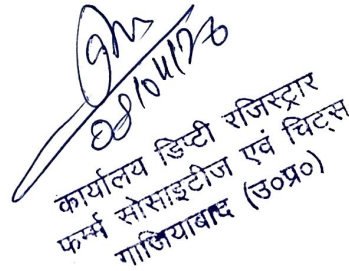 08/04/26
कार्यालय डिप्टी रजिस्ट्रार
फर्म्स सोसाइटीज एवं चिट्स
गाजियाबाद (उ०प्र०)